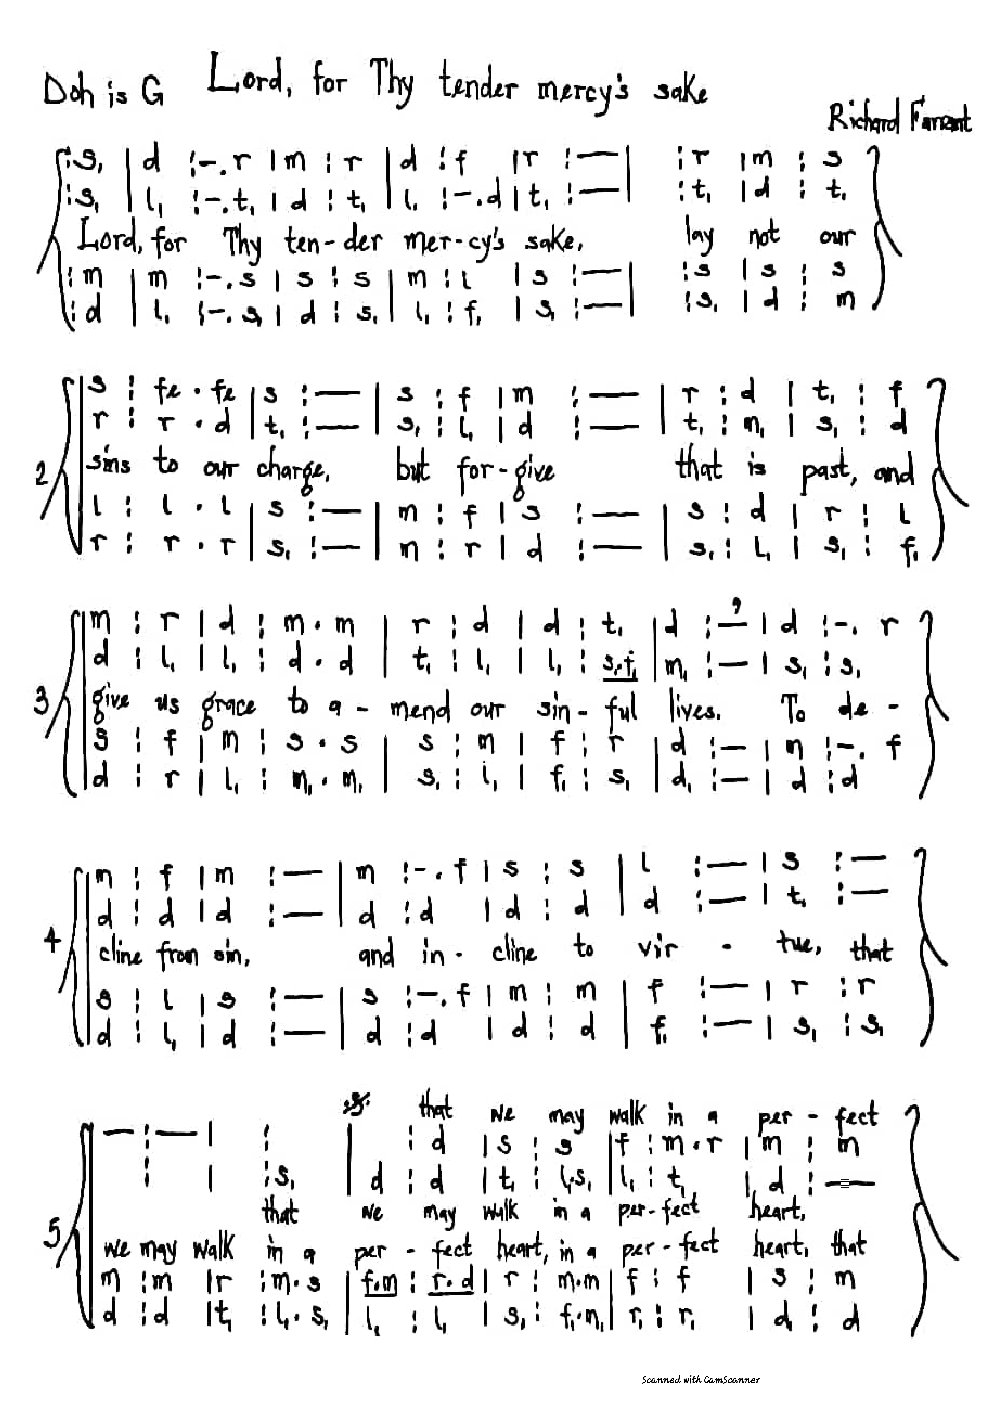 Doh is G Lord, for Thy tender mercy's sake
Richard Farrant
:s, | d :-. r | m : r | d : f | r :— | : r | m : s
:s, | l, :-. t, | d : t, | l, :-. d | t, :— | : t, | d : t,
Lord, for Thy ten-der mer-cy's sake, lay not our
: m | m :-. s | s : s | m : l | s :— | : s | s : s
: d | l, :-. s, | d : s, | l, : f, | s, :— | : s, | d : m
s : fe . fe | s :— | s : f | m :— | r : d | t, : f
r : r . d | t, :— | s, : l, | d :— | t, : m, | s, : d
2 sins to our charge, but for-give that is past, and
l : l . l | s :— | m : f | s :— | s : d | r : l
r : r . r | s, :— | m : r | d :— | s, : l, | s, : f,
m : r | d : m . m | r : d | d : t, | d :—, | d :-. r
d : l, | l, : d . d | t, : l, | l, : s,.t, | m, :— | s, : s,
3 give us grace to a-mend our sin-ful lives. To de-
s : f | m : s . s | s : m | f : r | d :— | m :-. f
d : r | l, : m, . m, | s, : l, | f, : s, | d, :— | d : d
m : f | m :— | m :-. f | s : s | l :— | s :—
d : d | d :— | d : d | d : d | d :— | t, :—
4 cline from sin, and in-cline to vir - tue, that
s : l | s :— | s :-. f | m : m | f :— | r : r
d : l, | d :— | d : d | d : d | f, :— | s, : s,
that we may walk in a per-fect
— :— | : | : d | s : s | f : m . r | m : m
: | : s, | d : d | t, : l,.s, | l, : t, | d :—
that we may walk in a per-fect heart,
5 we may walk in a per-fect heart, in a per-fect heart, that
m : m | r : m . s | f.m : r.d | r : m.m | f : f | s : m
d : d | t, : l, . s, | l, : l, | s, : f,.m, | r, : r, | d, : d
Scanned with CamScanner